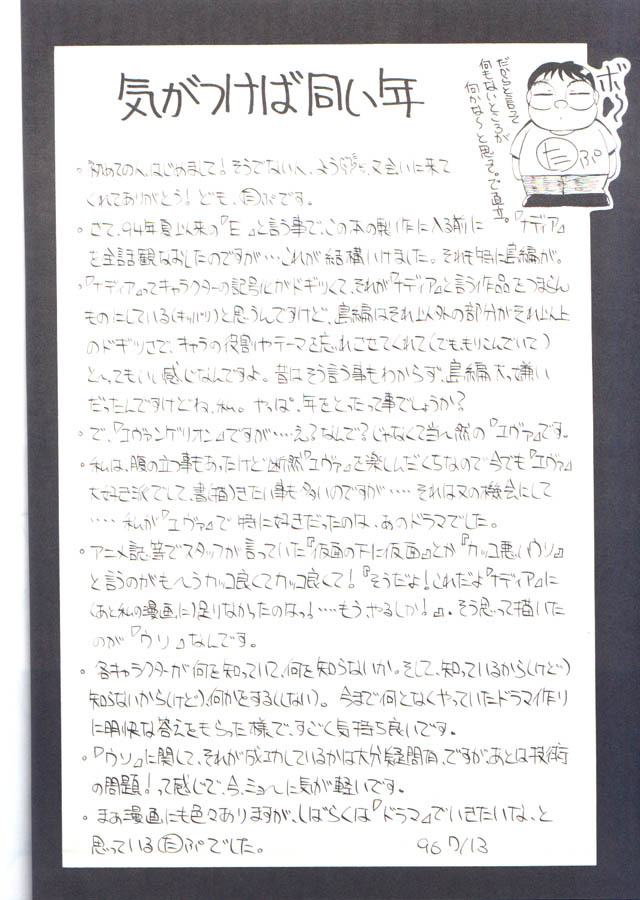 気がつけば同い年
ボ〜
だからと言って
何もないところが
何かな〜と思って。で直立。
たぷ
。初めての人、はじめまして！そうでない人、よう、又会いに来て
くれてありがとう！ども、たぷです。
。さて、94年夏以来の『E』と言う事で、この本の製作に入る前に『ナディア』
を全話観なおしたのですが…これが結構いけました。それも特に島編が。
。『ナディア』ってキャラクターの記号化がドギツくて、それが『ナディア』と言う作品をつまらん
ものにしている(キッパリ)と思うんですけど、島編はそれ以外の部分がそれ以上
のドギツさで、キャラの役割やテーマを忘れさせてくれて(でも、もりこんでいて)
とってもいい感じなんですよ。昔はそう言う事もわからず、島編大っ嫌い
だったんですけどね、私。やっぱ、年をとったって事でしょうか？
。で、『エヴァンゲリオン』ですが……え？なんで？じゃなくて当然の『エヴァ』です。
。私は、腹の立つ事もあったけど断然『エヴァ』を楽しんだくちなので今でも『エヴァ』
大好き派でして、書(描)きたい事も多いのですが……それは又の機会にして
……私が『エヴァ』で特に好きだったのは、あのドラマでした。
。アニメ誌等でスタッフが言っていた『仮面の下に仮面』とか『カッコ悪いウソ』
と言うのがも〜うカッコ良くてカッコ良くて！『そうだよ！これだよ『ナディア』に
(あと私の漫画に)足りなかったのなっ！……もう、やるしか！』、そう思って描いた
のが『ウソ』なんです。
。各キャラクターが何を知っていて、何を知らないか。そして、知っているから(けど)
知らないから(けど)、何かをする(しない)。今まで何となくやっていたドラマ作り
に明快な答えをもらった様で、すごく気持ち良いです。
。『ウソ』に関して、それが成功しているかは大分疑問有、ですが、あとは技術
の問題！って感じで、今、ミョ〜に気が軽いです。
。まあ漫画にも色々ありますが、しばらくは『ドラマ』でいきたいな、と
思っているたぷでした。
96 7/13